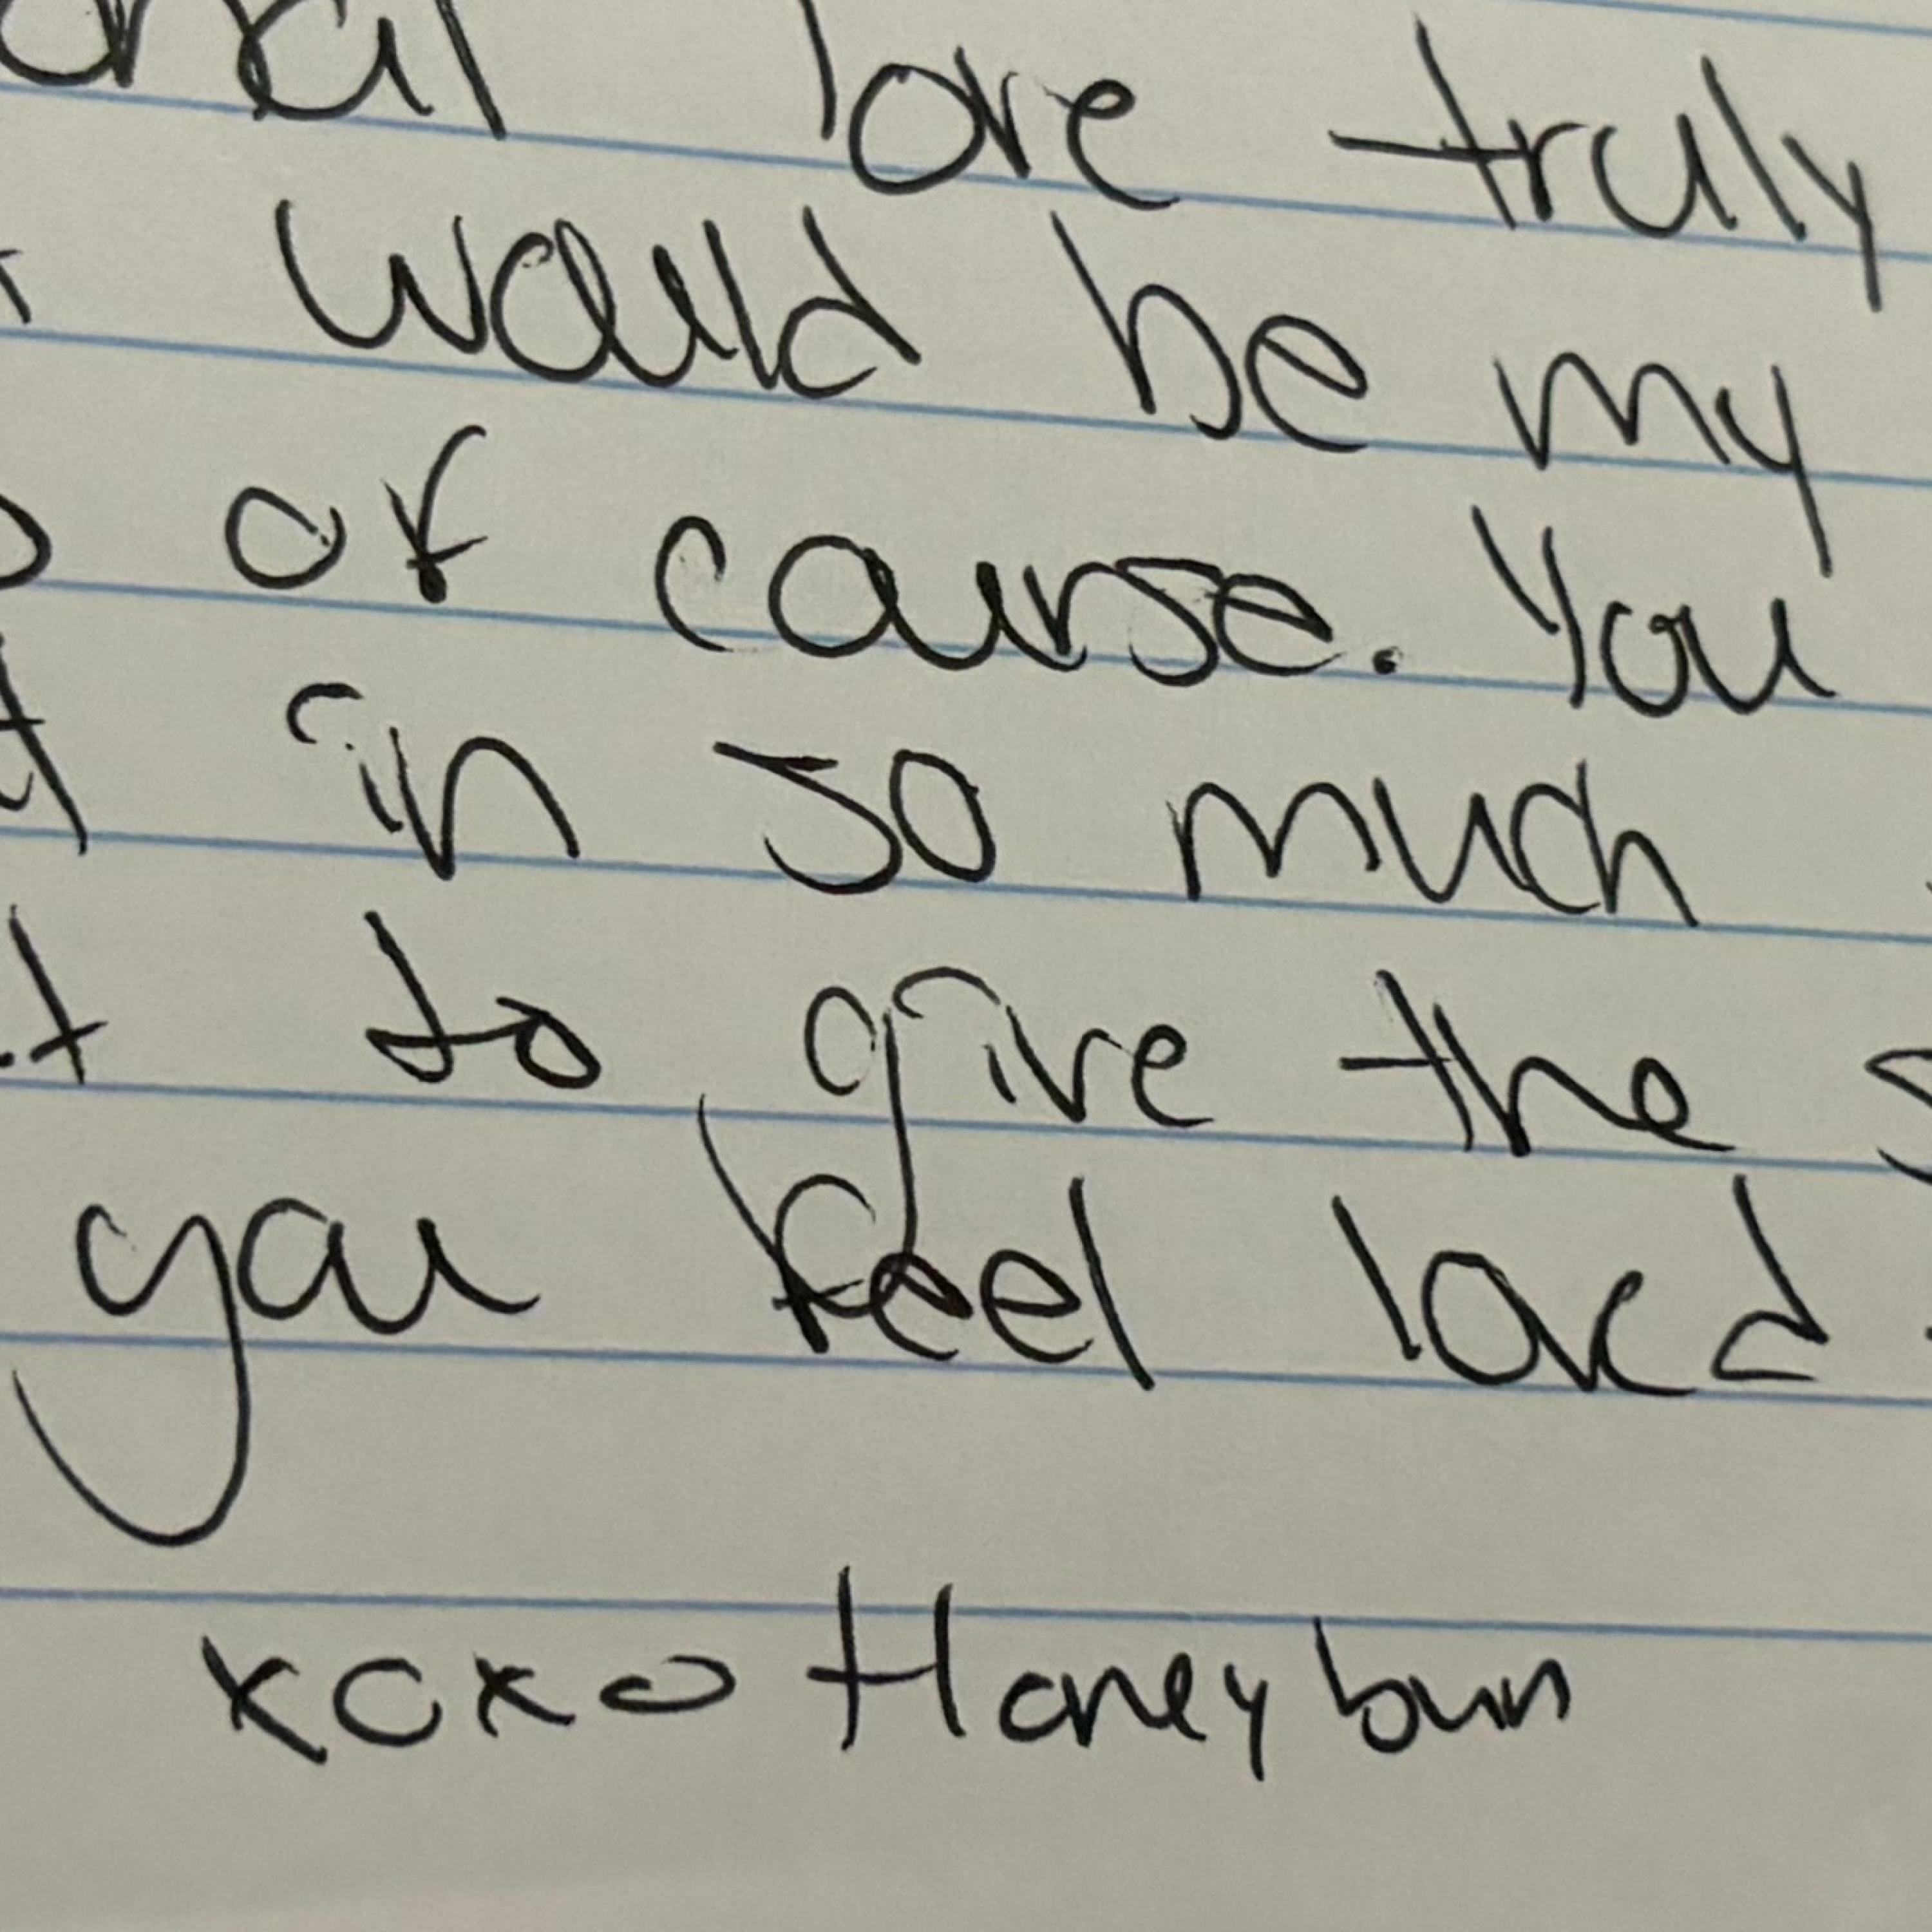 onal love truly
would be my
of course. You
in so much
to give the
you feel loved
xoxo Honeybun